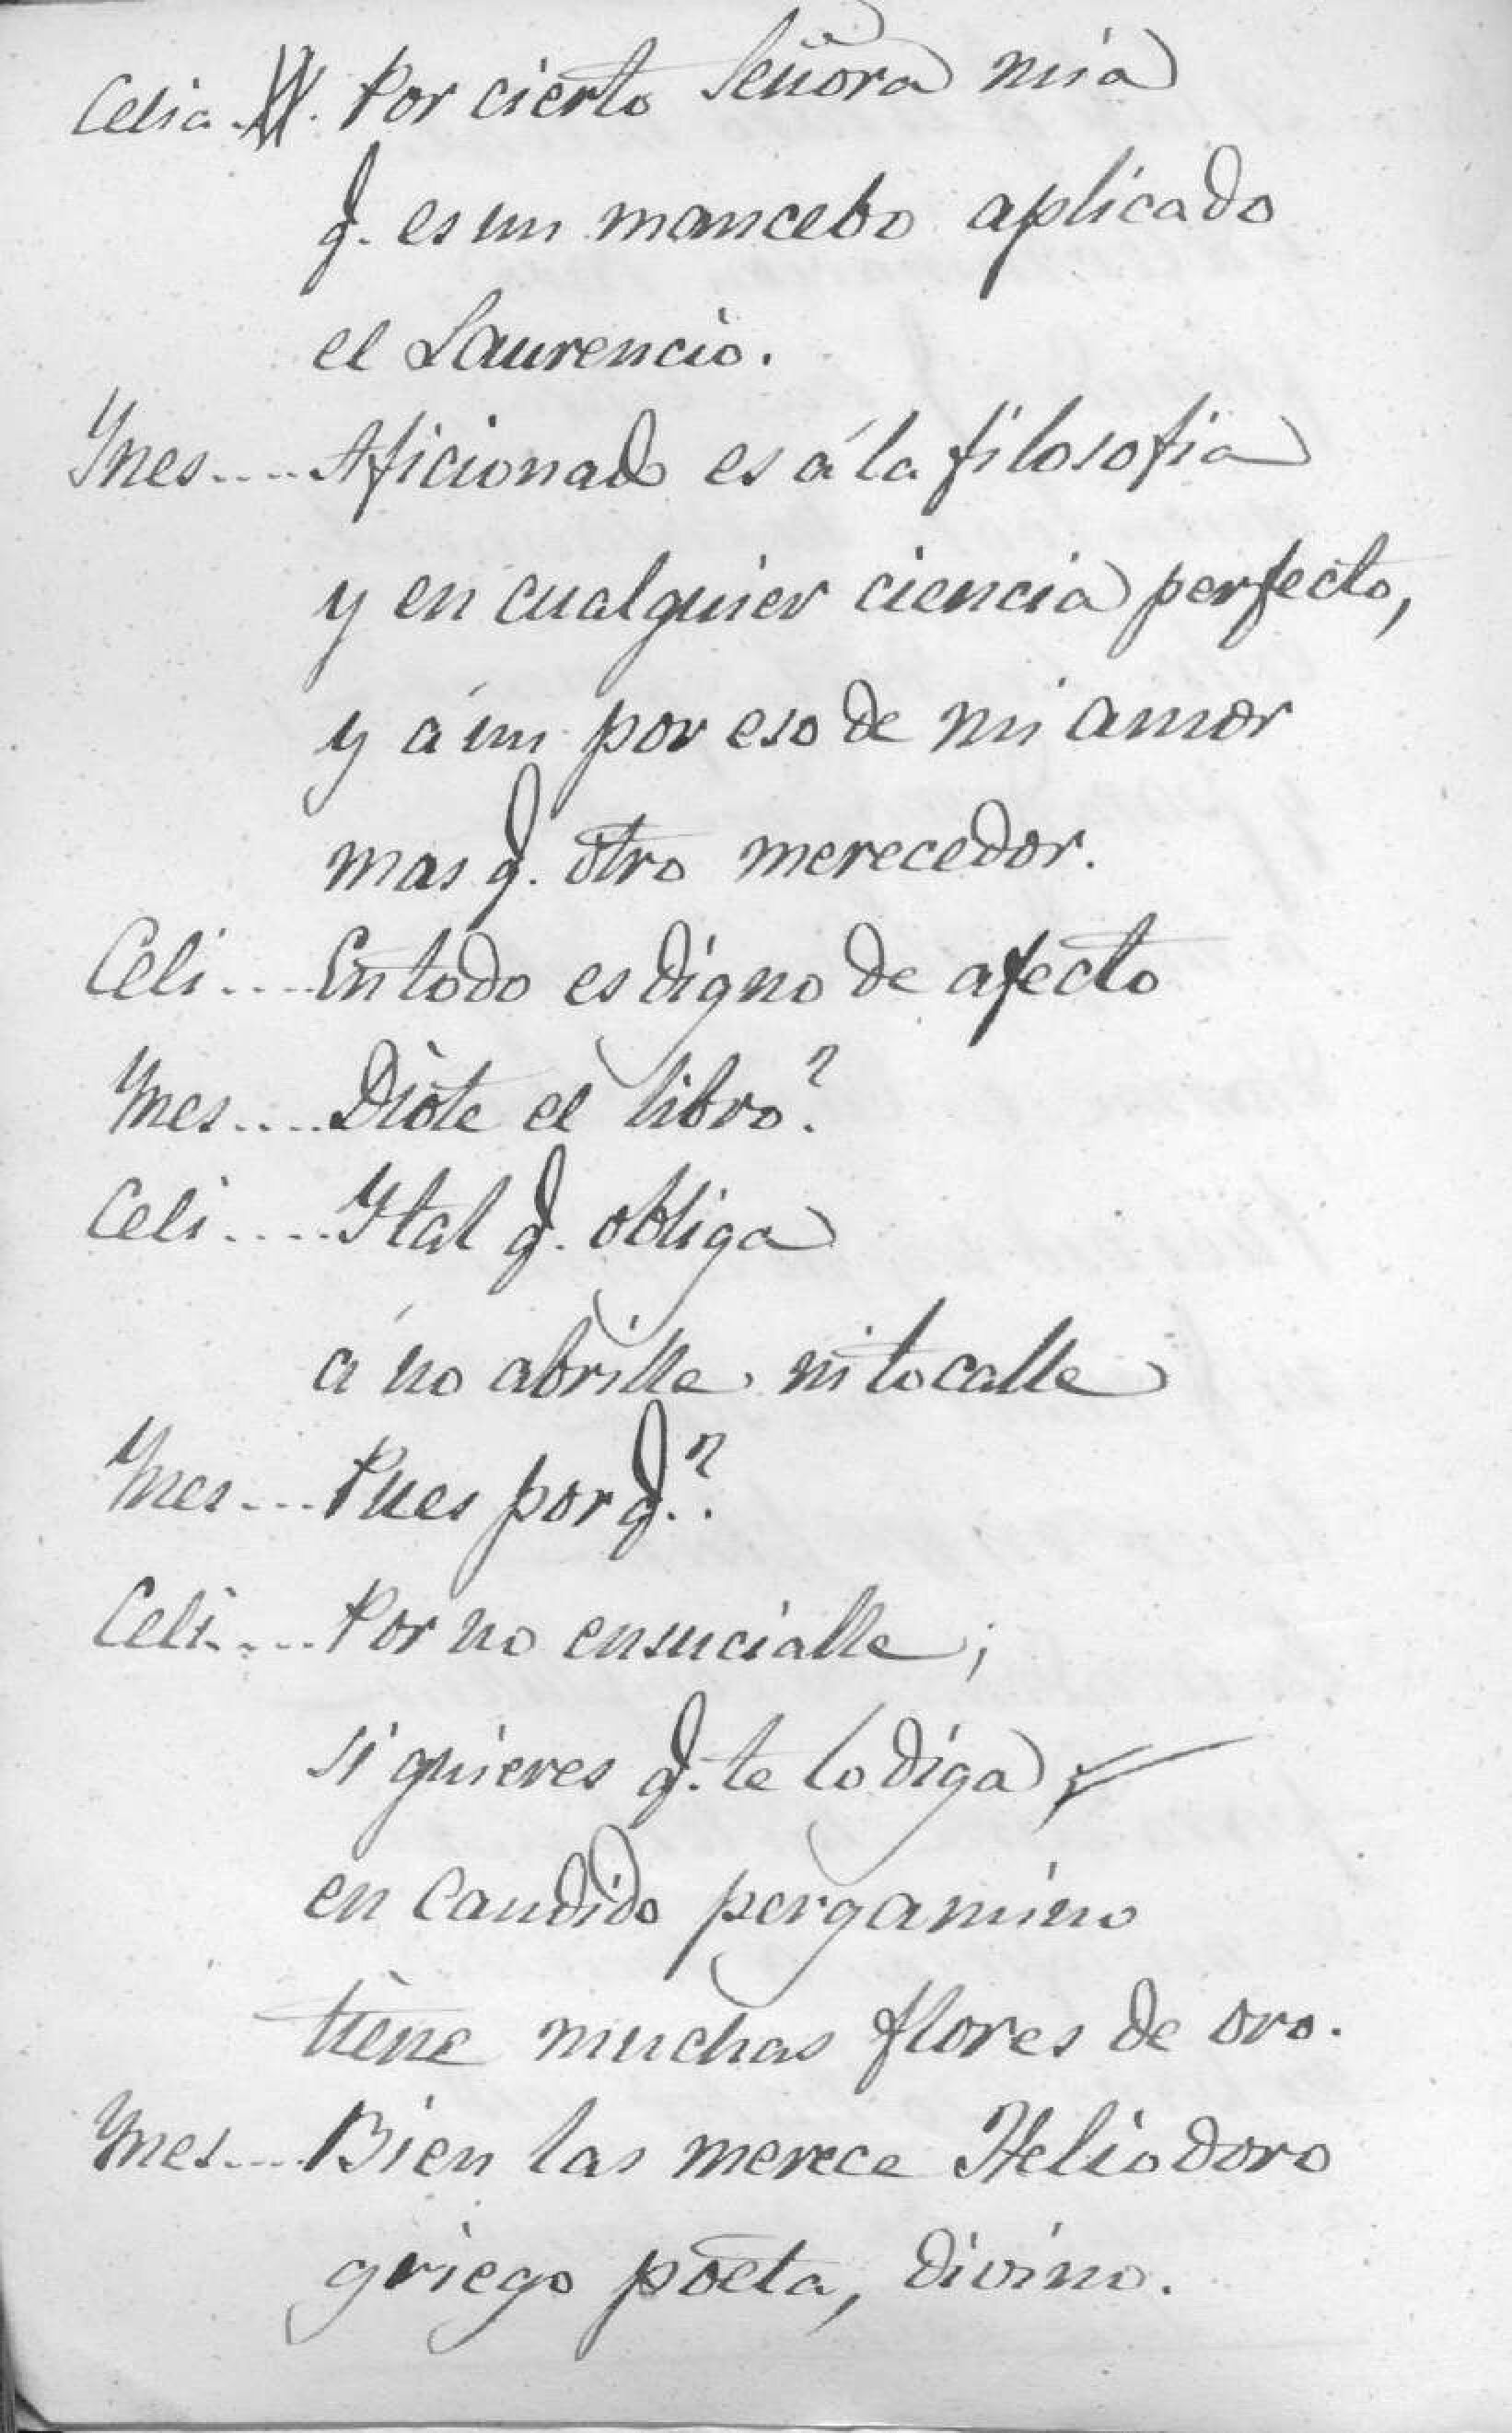 Celia. Por cierto Señora mia
q. es un mancebo aplicado
el Laurencio.
Ynes.... Aficionado es á la filosofia
y en cualquier ciencia perfecto,
y áun por eso de mi amor
mas q. otro merecedor.
Celi.... En todo es digno de afecto
Ynes.... Dióte el libro?
Celi.... Y tal q. obliga
á no abrille ni tocalle
Ynes... Pues por q.?
Celi.... Por no ensucialle;
si quieres q. te lo diga
en Candido pergamino
tiene muchas flores de oro.
Ynes.... Bien las merece Heliodoro
griego poeta, divino.